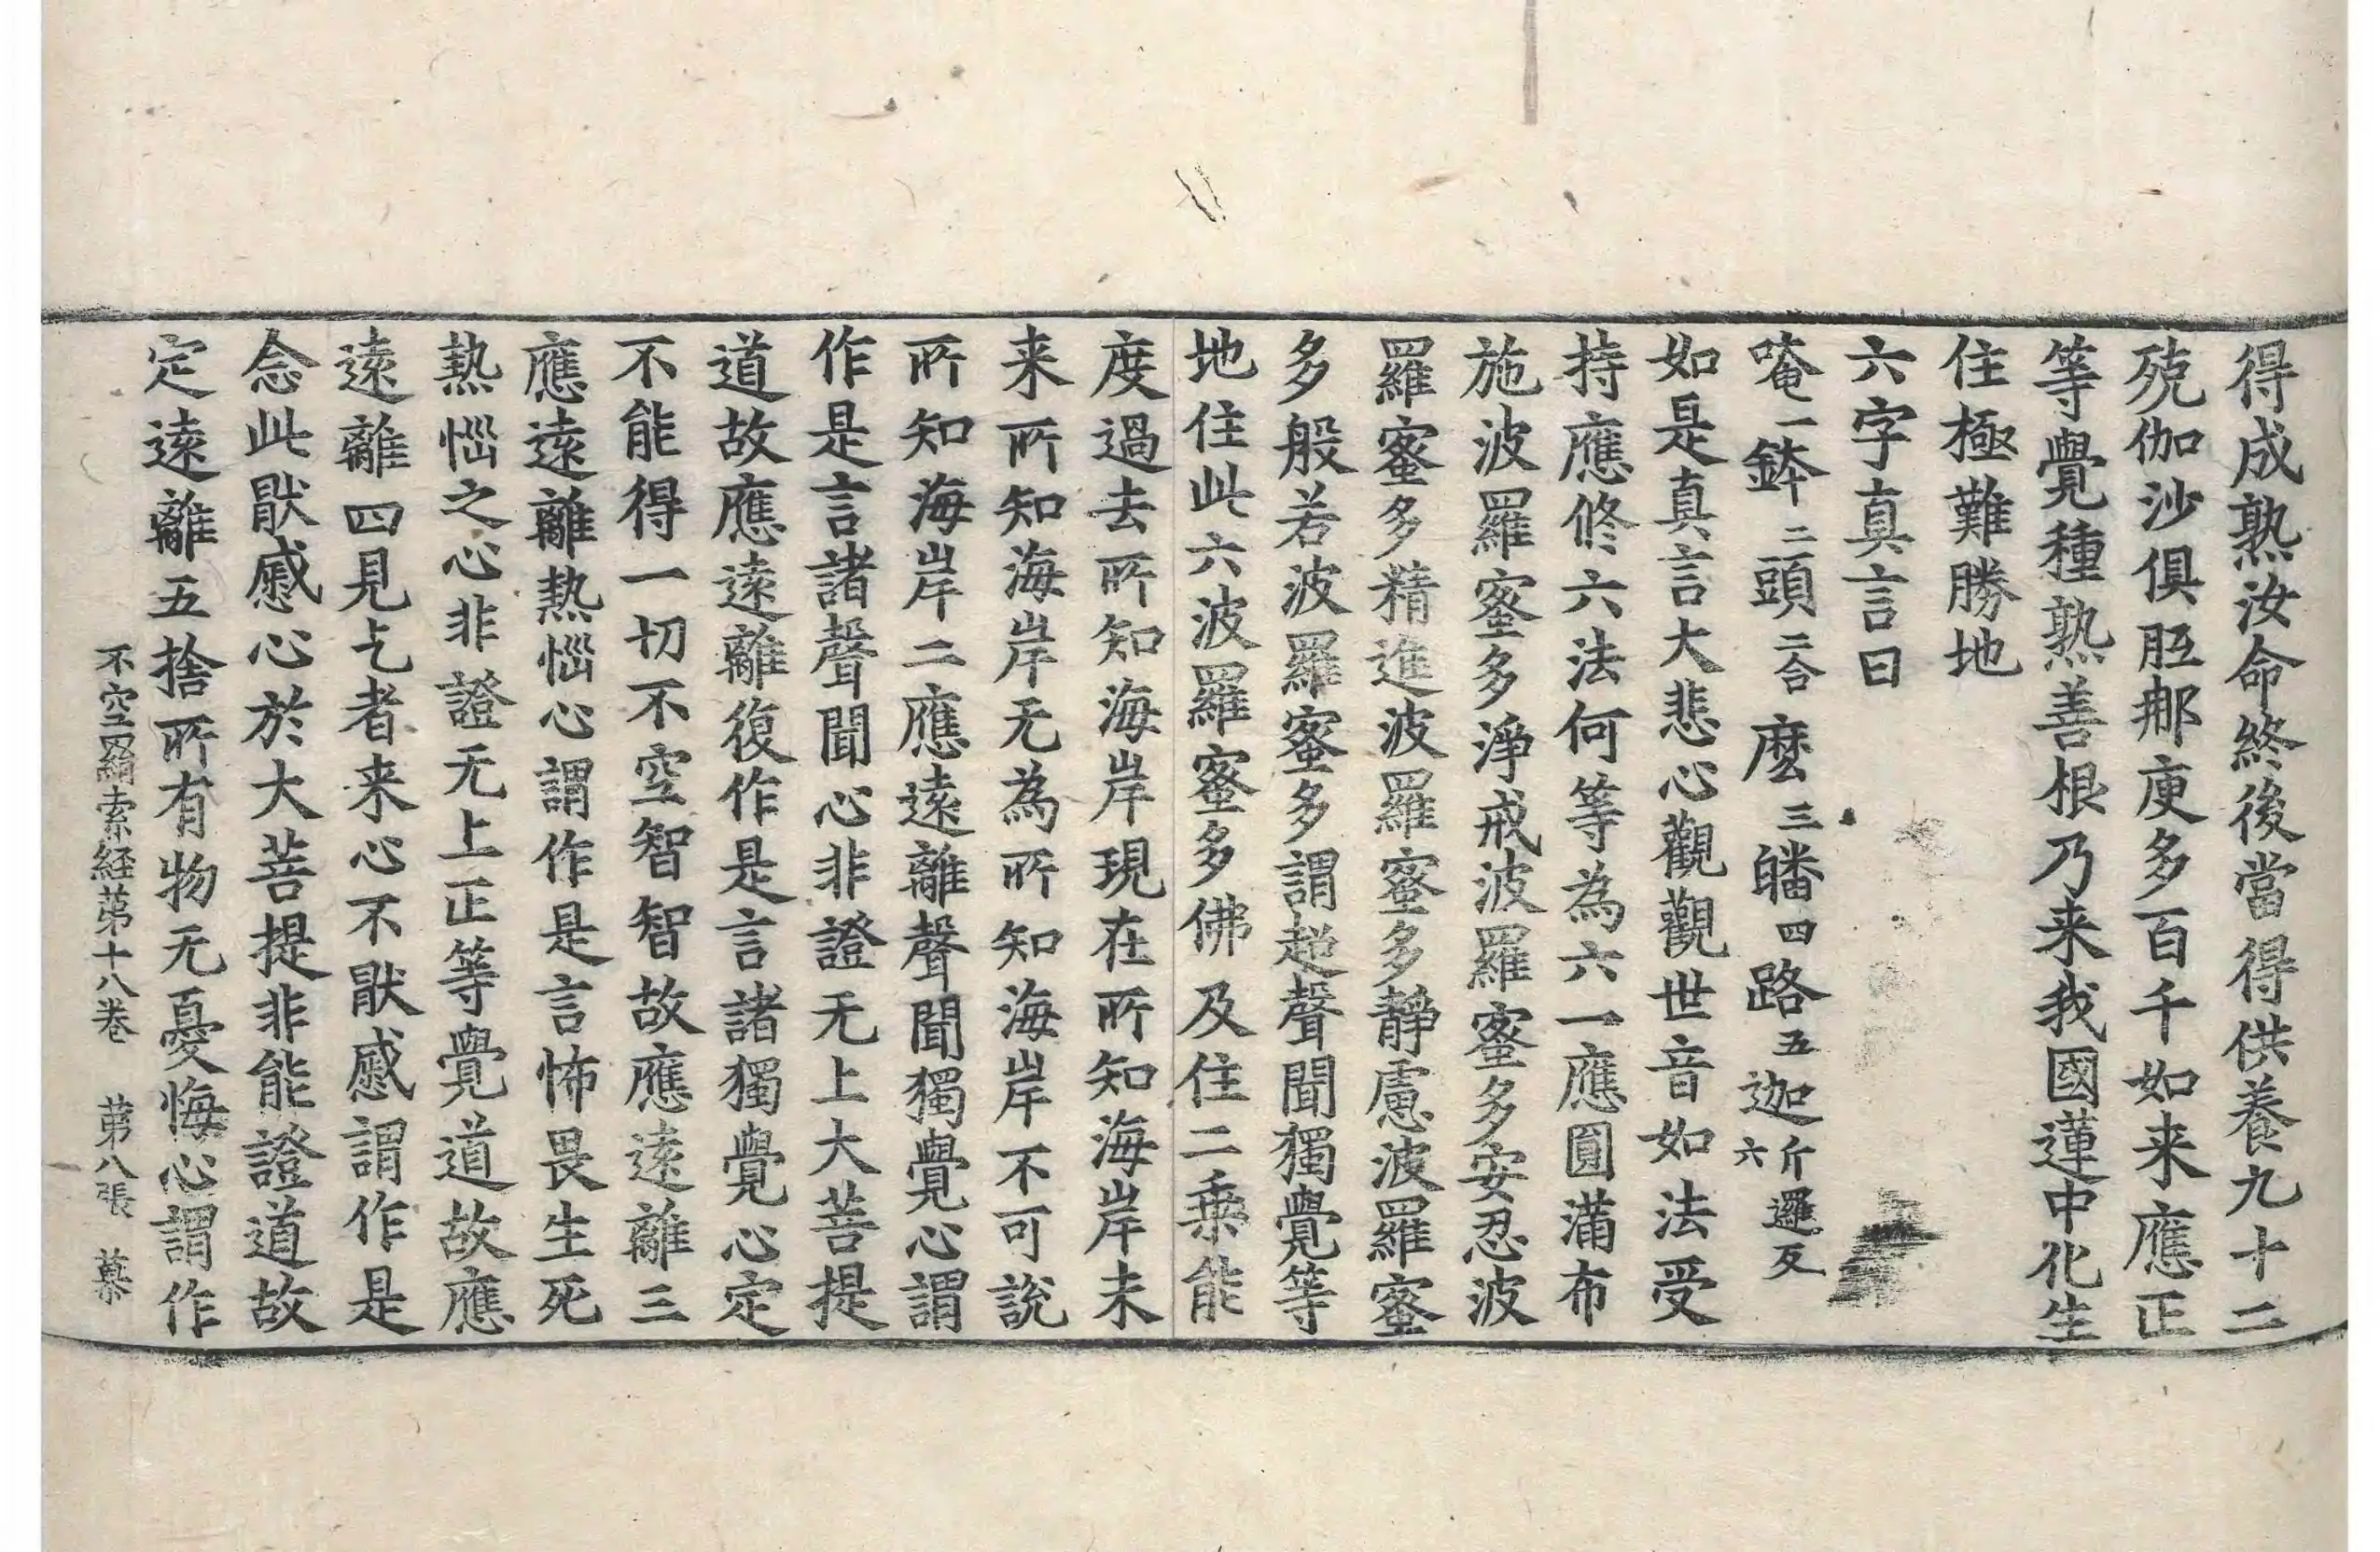 得成熟汝命終後當得供養九十二
殑伽沙俱胝那庾多百千如来應正
等覺種熟善根乃来我國蓮中化生
住極難勝地
六字真言曰
唵一鉢二頭二合麼三皤四路五迦斤邏反六
如是真言大悲心觀觀世音如法受
持應修六法何等為六一應圓滿布
施波羅蜜多淨戒波羅蜜多安忍波
羅蜜多精進波羅蜜多靜慮波羅蜜
多般若波羅蜜多謂超聲聞獨覺等
地住此六波羅蜜多佛及住二乗能
度過去所知海岸現在所知海岸未
来所知海岸无為所知海岸不可說
所知海岸二應遠離聲聞獨覺心謂
作是言諸聲聞心非證无上大菩提
道故應遠離復作是言諸獨覺心定
不能得一切不空智智故應遠離三
應遠離熱惱心謂作是言怖畏生死
熱惱之心非證无上正等覺道故應
遠離四見乞者来心不猒慼謂作是
念此猒慼心於大菩提非能證道故
定遠離五捨所有物无憂悔心謂作
不空羂索経苐十八卷 苐八張 慕